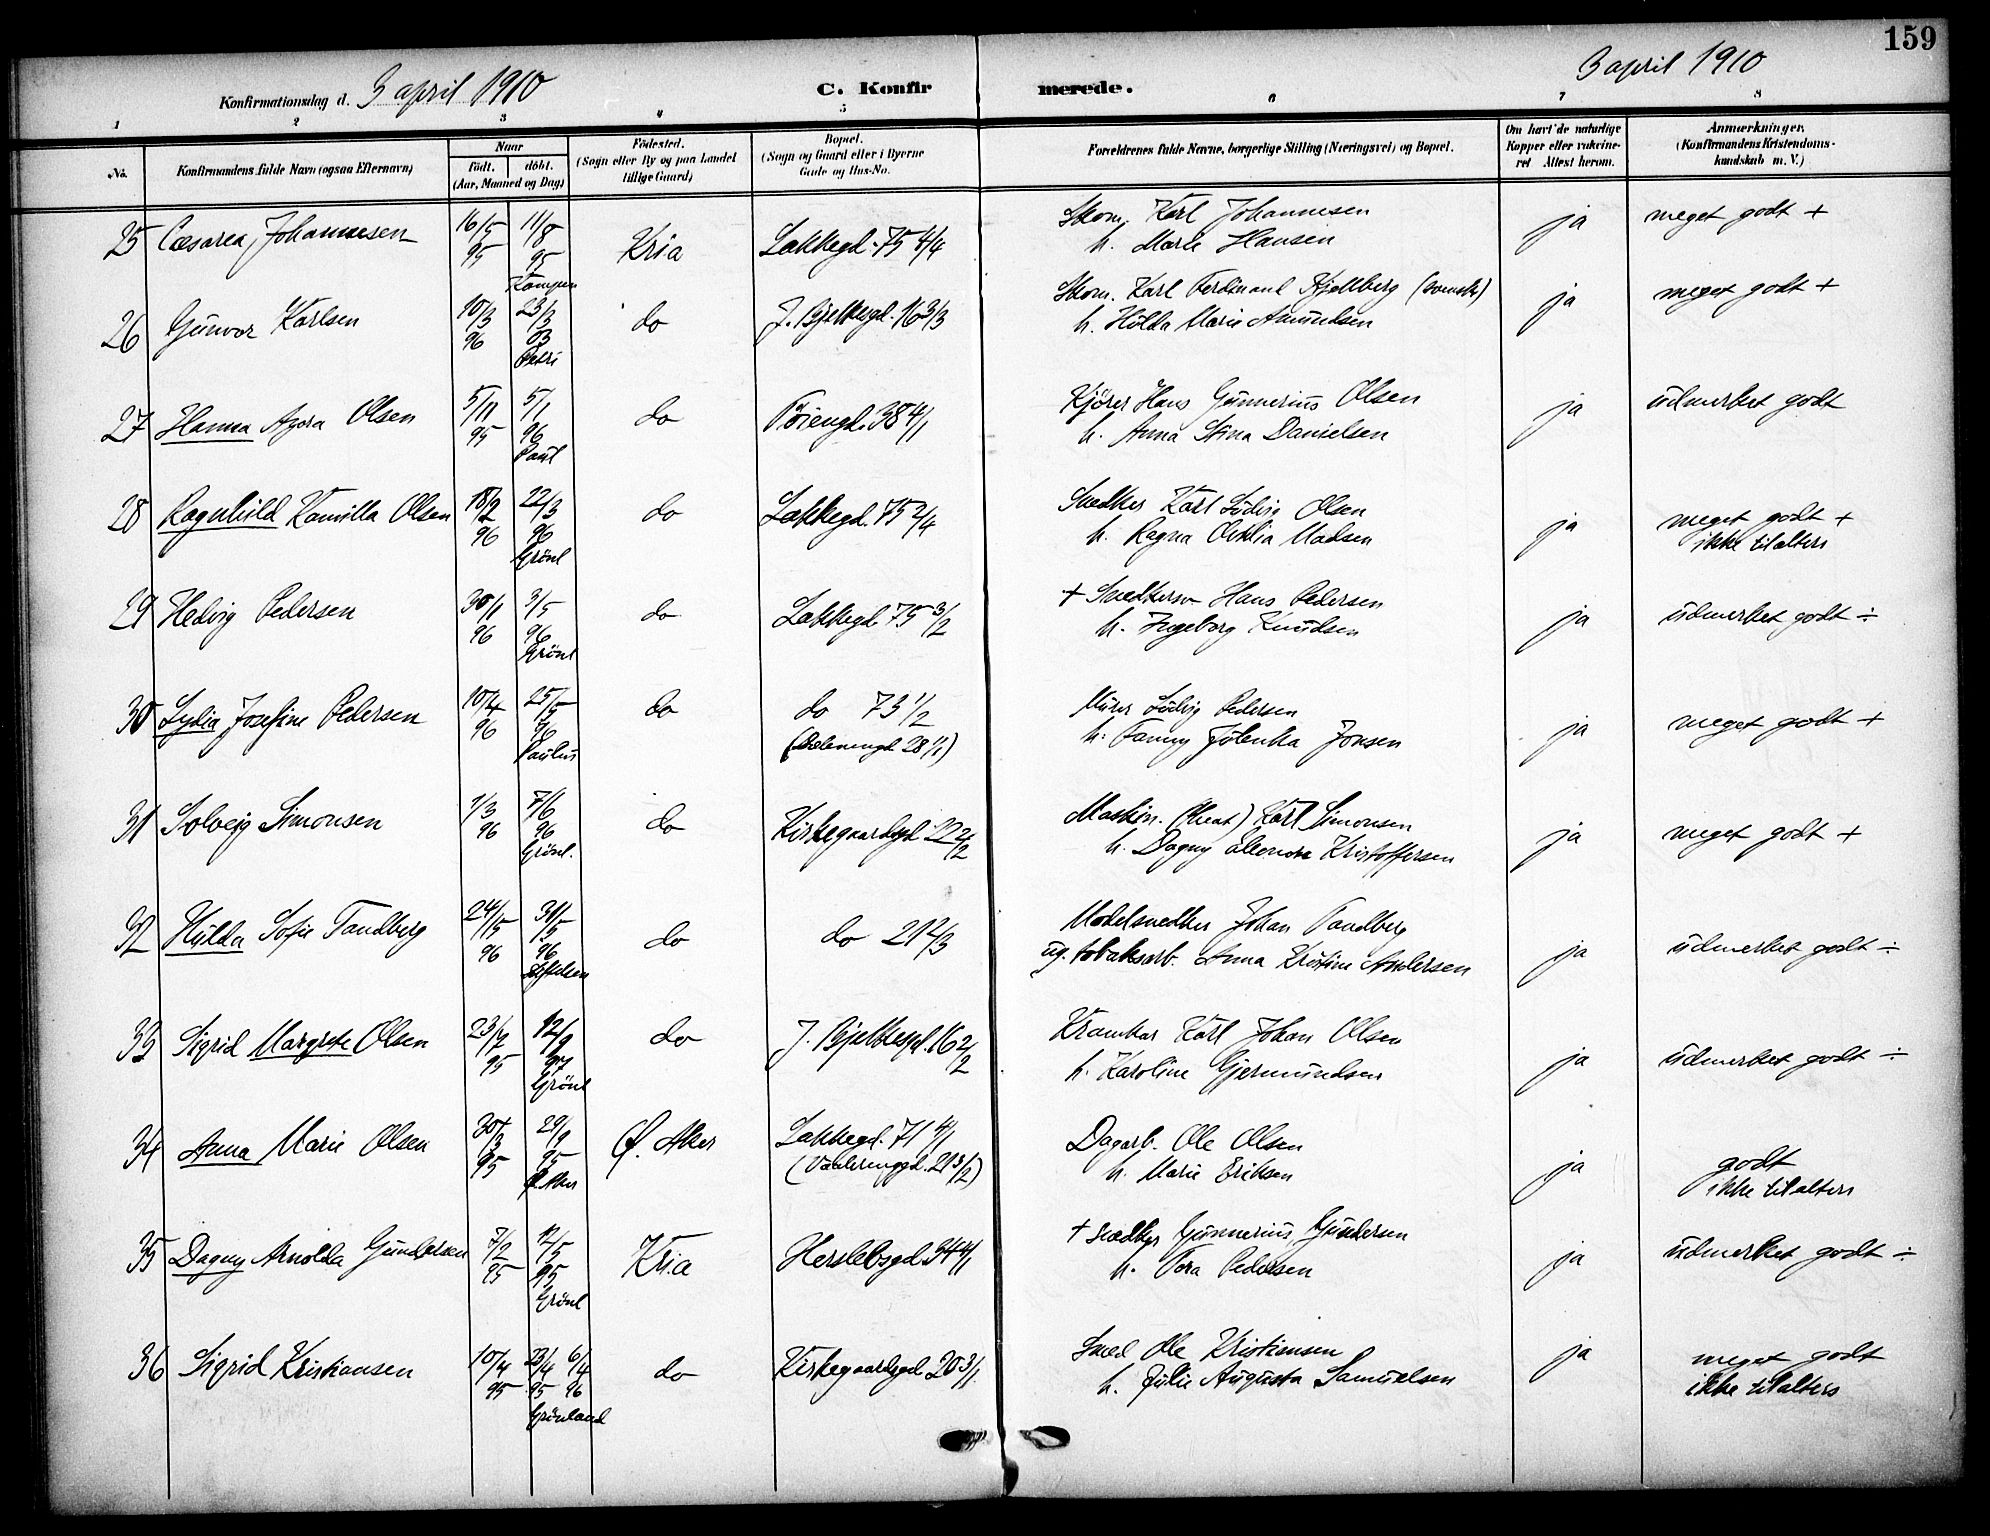 159
Konfirmationsdag d. 3 april 1910
C. Konfirmerede.
3 april 1910
1 2 3 4 5 6 7 8
No.
Konfirmandens fulde Navn (ogsaa Efternavn)
Naar
født. døbt.
(Aar, Maaned og Dag)
Fødested.
(Sogn eller By og paa Landet
tillige Gaard)
Bopæl.
(Sogn og Gaard eller i Byerne
Gade og Hus-No.
Forældrenes fulde Navne, borgerlige Stilling (Næringsvei) og Bopæl.
Om havt de naturlige
Kopper eller vaccine-
ret Attest herom.
Anmærkninger.
(Konfirmandens Kristendoms-
kundskab m. V.)
25 Cæsarea, Johannesen 16/5 95 11/8 95 Kampen Kria Lakkegd. 75 4/4
Skom. Karl Johannesen
h. Marie Hansen
ja meget godt +
26 Gunvor Karlsen 10/3 96 23/3 03 Petri do J. Bjelkegd. 16 3/3
Skom. Karl Ferdinand Kjellberg (svensk)
h. Hilda Marie Amundsen
ja meget godt +
27 Hanna Agora Olsen 5/11 95 5/1 96 Paul do Tøiengd. 38 4/1
Kjører Hans Gunnerius Olsen
h. Anna Stina Danielsen
ja udmerket godt
28 Ragnhild Kamilla Olsen 18/2 96 22/3 96 Grønl do Lakkegd. 75 2/4
Snedker Karl Ludvig Olsen
h. Ragna Otilia Madsen
ja meget godt +
ikke til alters
29 Hedvig Pedersen 30/1 96 3/5 96 Grønl do Lakkegd. 75 3/2
+ Snedkersv. Hans Pedersen
h. Ingeborg Knudsen
ja udmerket godt ÷
30 Lydia Josefine Pedersen 10/4 96 25/5 96 Paulus do do 73 1/2
28 1/1)
Murer Ludvig Pedersen
h. Fanny Jonsen
ja meget godt +
31 Solveig Simonsen 1/3 96 7/6 96 Grønl. do Kirkegaardsgd. 22 2/2
Maskin. Karl Simonsen
h. Dagny Elenora Kristoffersen
ja meget godt +
32 Hilda Sofie Tandberg 24/15 96 31/5 96 do do 21 2/3
Modelsnedker Johan Tandberg
ug. tobaksarb. Anna Kristine Andersen
ja udmerket godt ÷
33 Sigrid Margrete Olsen 23/7 95 12/9 97 Grønl do J. Bjelkesgd. 16 2/2
Kramkar Karl Johan Olsen
h. Karoline Gjermundsen
ja udmerket godt ÷
34 Anna Marie Olsen 30/3 95 29/9 95 Ø. Aker Ø. Aker Lakkegd. 71 4/1
(Vålerenggd. 21 3/2)
Dagarb. Ole Olsen
h. Marie Eriksen
ja godt
ikke til alters
35 Dagny Arnolda Gundersen 7/2 95 12/5 95 Grønl Kria Herslebsgd. 34 4/1
+ Snedker Gunnerius Gundersen
h. Tora Pedersen
ja udmerket godt ÷
36 Sigrid Kristiansen 10/4 95 23/4 95 6/4 96 Grønland do Kirkegaardsgd. 20 3/1
Smed Ole Kristiansen
h. Julie Augusta Samuelsen
ja meget godt
ikke til alters